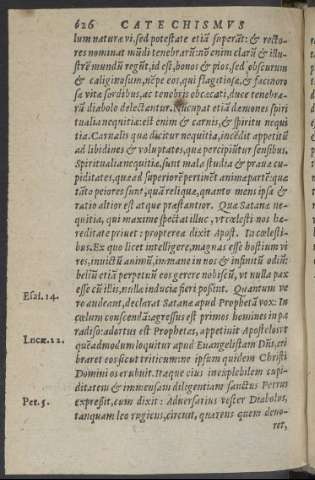 626 CATECHISMVS
lum naturæ vi, sed potestate etiã superãt: & recto-
res nominat mũdi tenebrarũ: nõ enim clarũ & illu-
strẽ mundũ regũt, id est, bonos & pios, sed obscurum
& caliginosum, nẽpe eos, qui flagitiosæ, & facinoro
sæ vitæ sordibus, ac tenebris obcæcati, duce tenebra-
rũ diabolo delectantur. Nũcupat etiã dæmones spiri
tualia nequitiæ: est enim & carnis, & spiritu nequi
tia. Carnalis quæ dicitur nequitia, incẽdit appetitũ
ad libidines & voluptates, quæ percipiũtur sensibus.
Spiritualia nequitiæ, sunt mala studia & prauæ cu-
piditates, quæ ad superiorẽ pertinẽt animæ partẽ: quæ
tãto peiores sunt, quã reliquæ, quanto mens ipsa &
ratio altior est atque præstantior. Quæ Satanæ ne-
quitia, qui maxime spectat illuc, vt cœlesti nos hæ-
reditate priuet: propterea dixit Apost. In cœlesti-
bus. Ex quo licet intelligere, magnas esse hostium vi
res, inuictũ animũ, immane in nos & infinitũ odiũ:
bellũ etiã perpetuũ eos gerere nobiscũ, vt nulla pax
esse cũ illis, nullæ induciæ fieri possint. Quantum ve
Esai. 14. ro audeant, declarat Satanæ apud Prophetã vox: In
cœlum conscendã: agressus est primos homines in pa
radiso: adortus est Prophetas, appetiuit Apostolos vt
Lucæ. 22. quẽadmodum loquitur apud Euangelistam Dñs, cri
braret eos sicut triticum: ne ipsum quidem Christi
Domini os erubuit. Itaque eius inexplebilem cupi-
ditatem & immensam diligentiam sanctus Petrus
Pet. 5. expressit, cum dixit: Aduersarius vester Diabolus,
tanquam leo rugiens, circuit, quærens quem deuo-
ret,